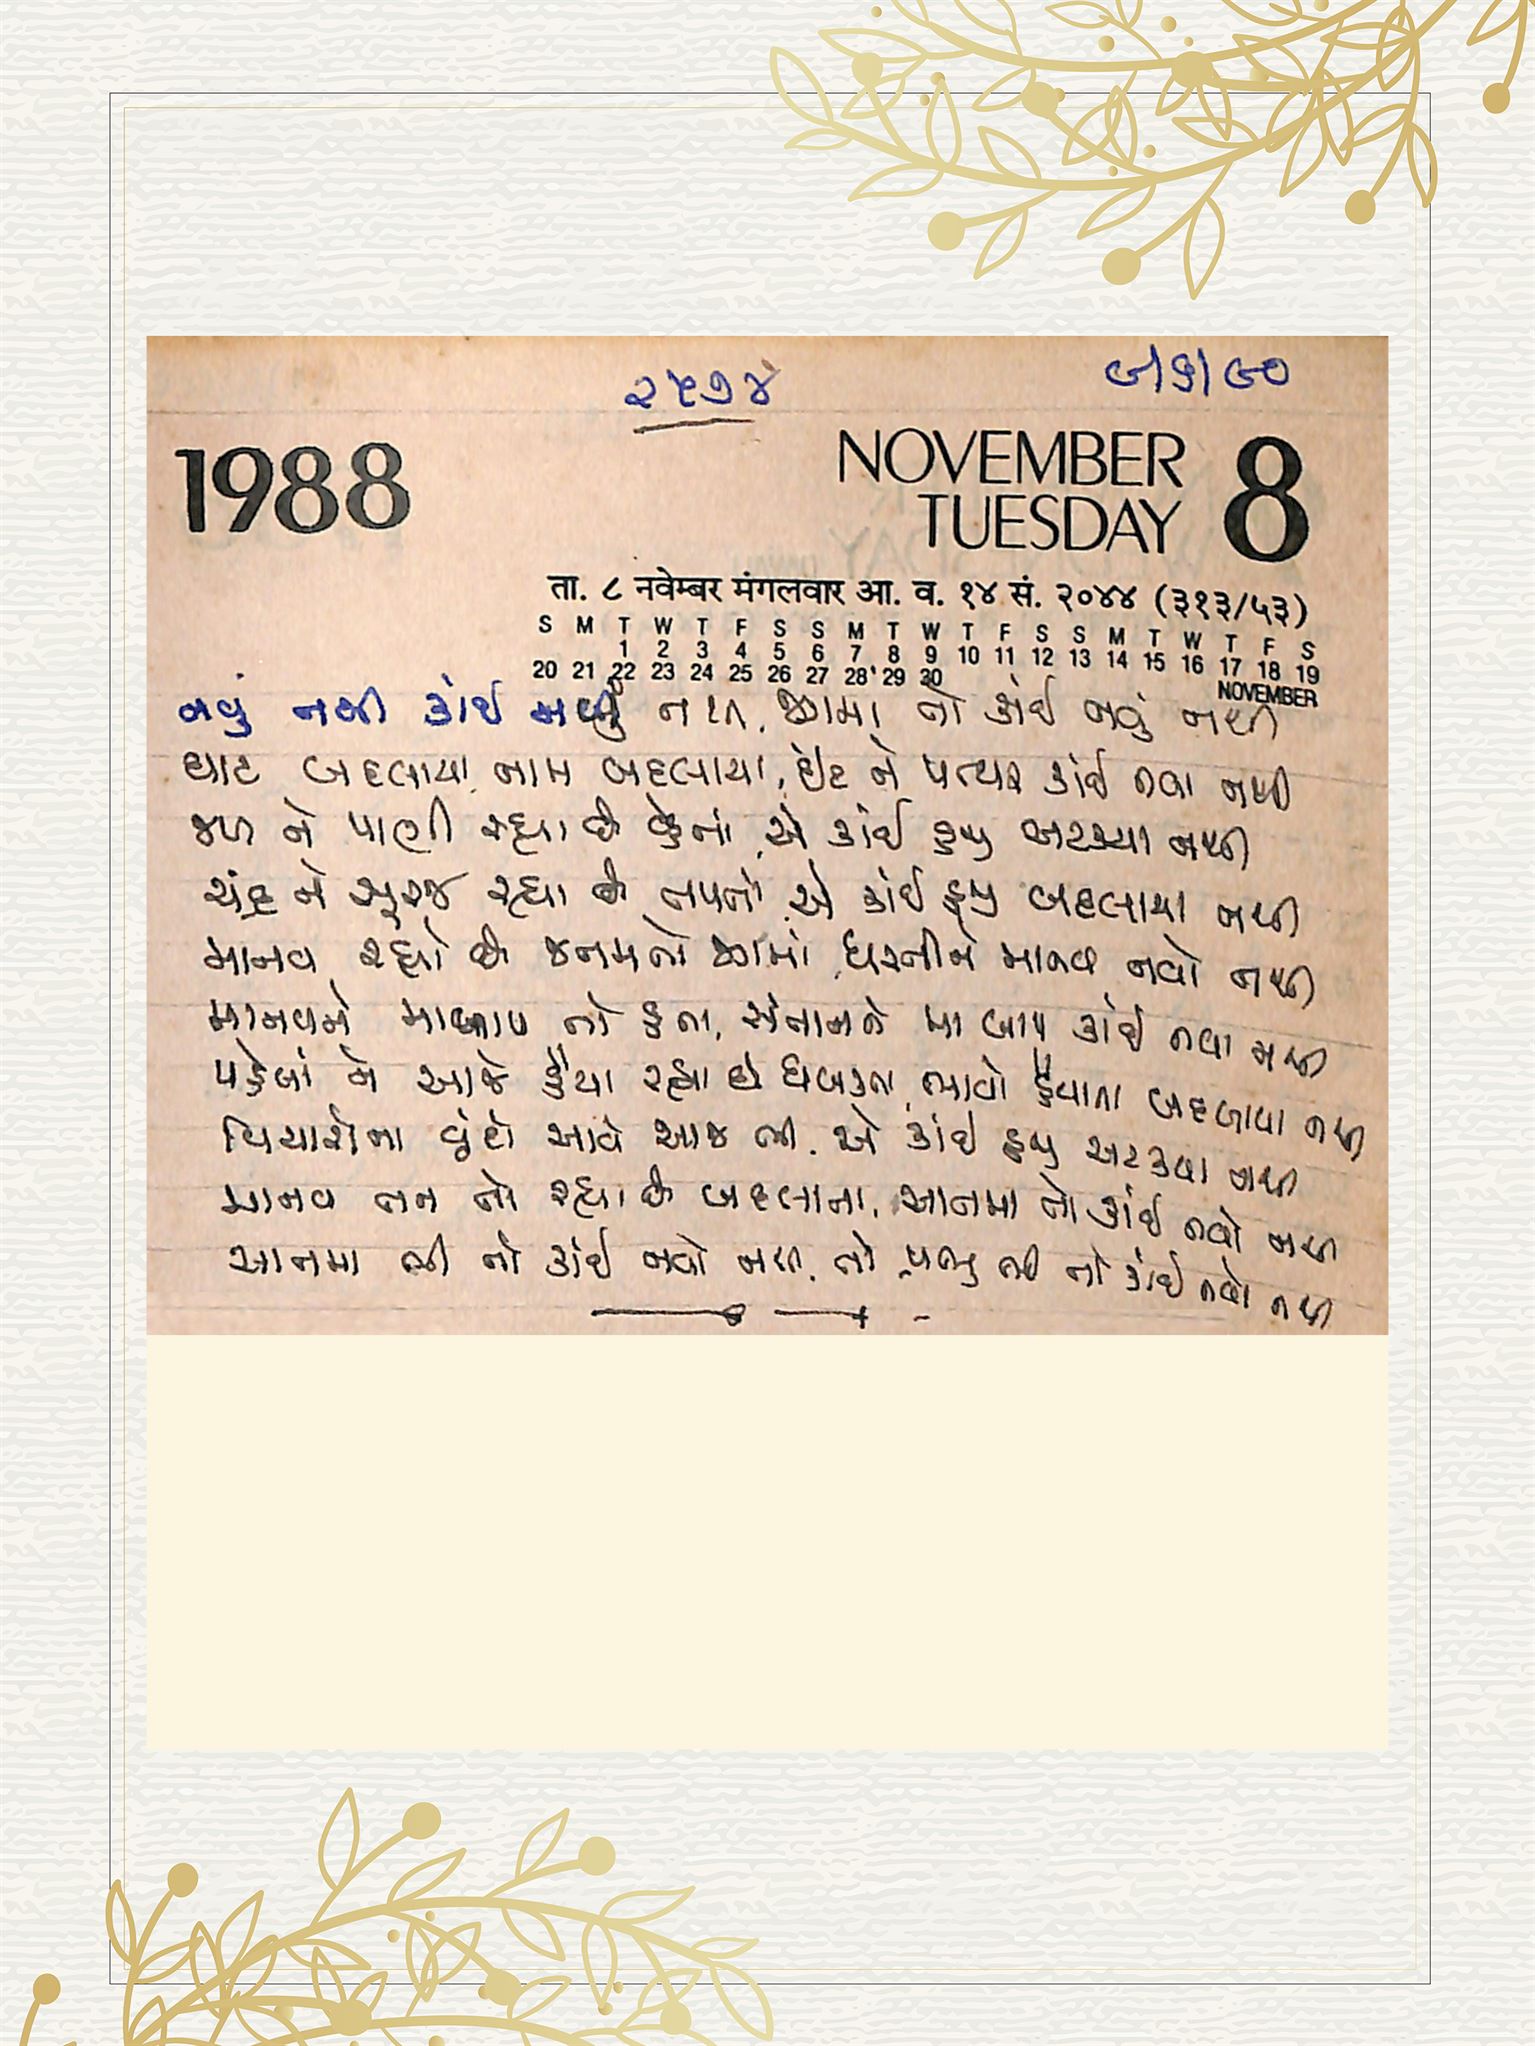 ૨૫૭૪
૯/૬/૯૦
1988
NOVEMBER
TUESDAY 8
ता. ८ नवेम्बर मंगलवार आ. व. १४ सं. २०४४ (३१३/५३)
S M T W T F S S M T W T F S S M T W T F S
1 2 3 4 5 6 7 8 9 10 11 12 13 14 15 16 17 18 19
20 21 22 23 24 25 26 27 28 29 30
NOVEMBER
નવું નથી કાંઈ નવું નથી, જગમાં તો કાંઈ નવું નથી
ઘાટ બદલાયા નામ બદલાયા, ઈંટ ને પત્થર કાંઈ નવા નથી
જળ ને પાણી રહ્યા છે વ્હેતાં, એ કાંઈ હજુ અટક્યા નથી
ચંદ્ર ને સૂરજ રહ્યા છે તપતાં, એ કાંઈ હજુ બદલાયા નથી
માનવ રહ્યો છે જનમતો જગમાં, ધરતીને માનવ નવો નથી
માનવને માબાપ તો હતા, સંતાનને મા બાપ કાંઈ નવા નથી
પહેલાં ને આજે હૈયા રહ્યા છે ધબકતા, ભાવો હૈયાના બદલાયા નથી
વિચારોના વૃંદો આવે આજ ભી, એ કાંઈ હજુ અટક્યા નથી
માનવ તન તો રહ્યા છે બદલાતા, આતમા તો કાંઈ નવો નથી
આતમા ભી તો કાંઈ નવો નથી, તો પ્રભુ ભી તો કાંઈ નવો નથી